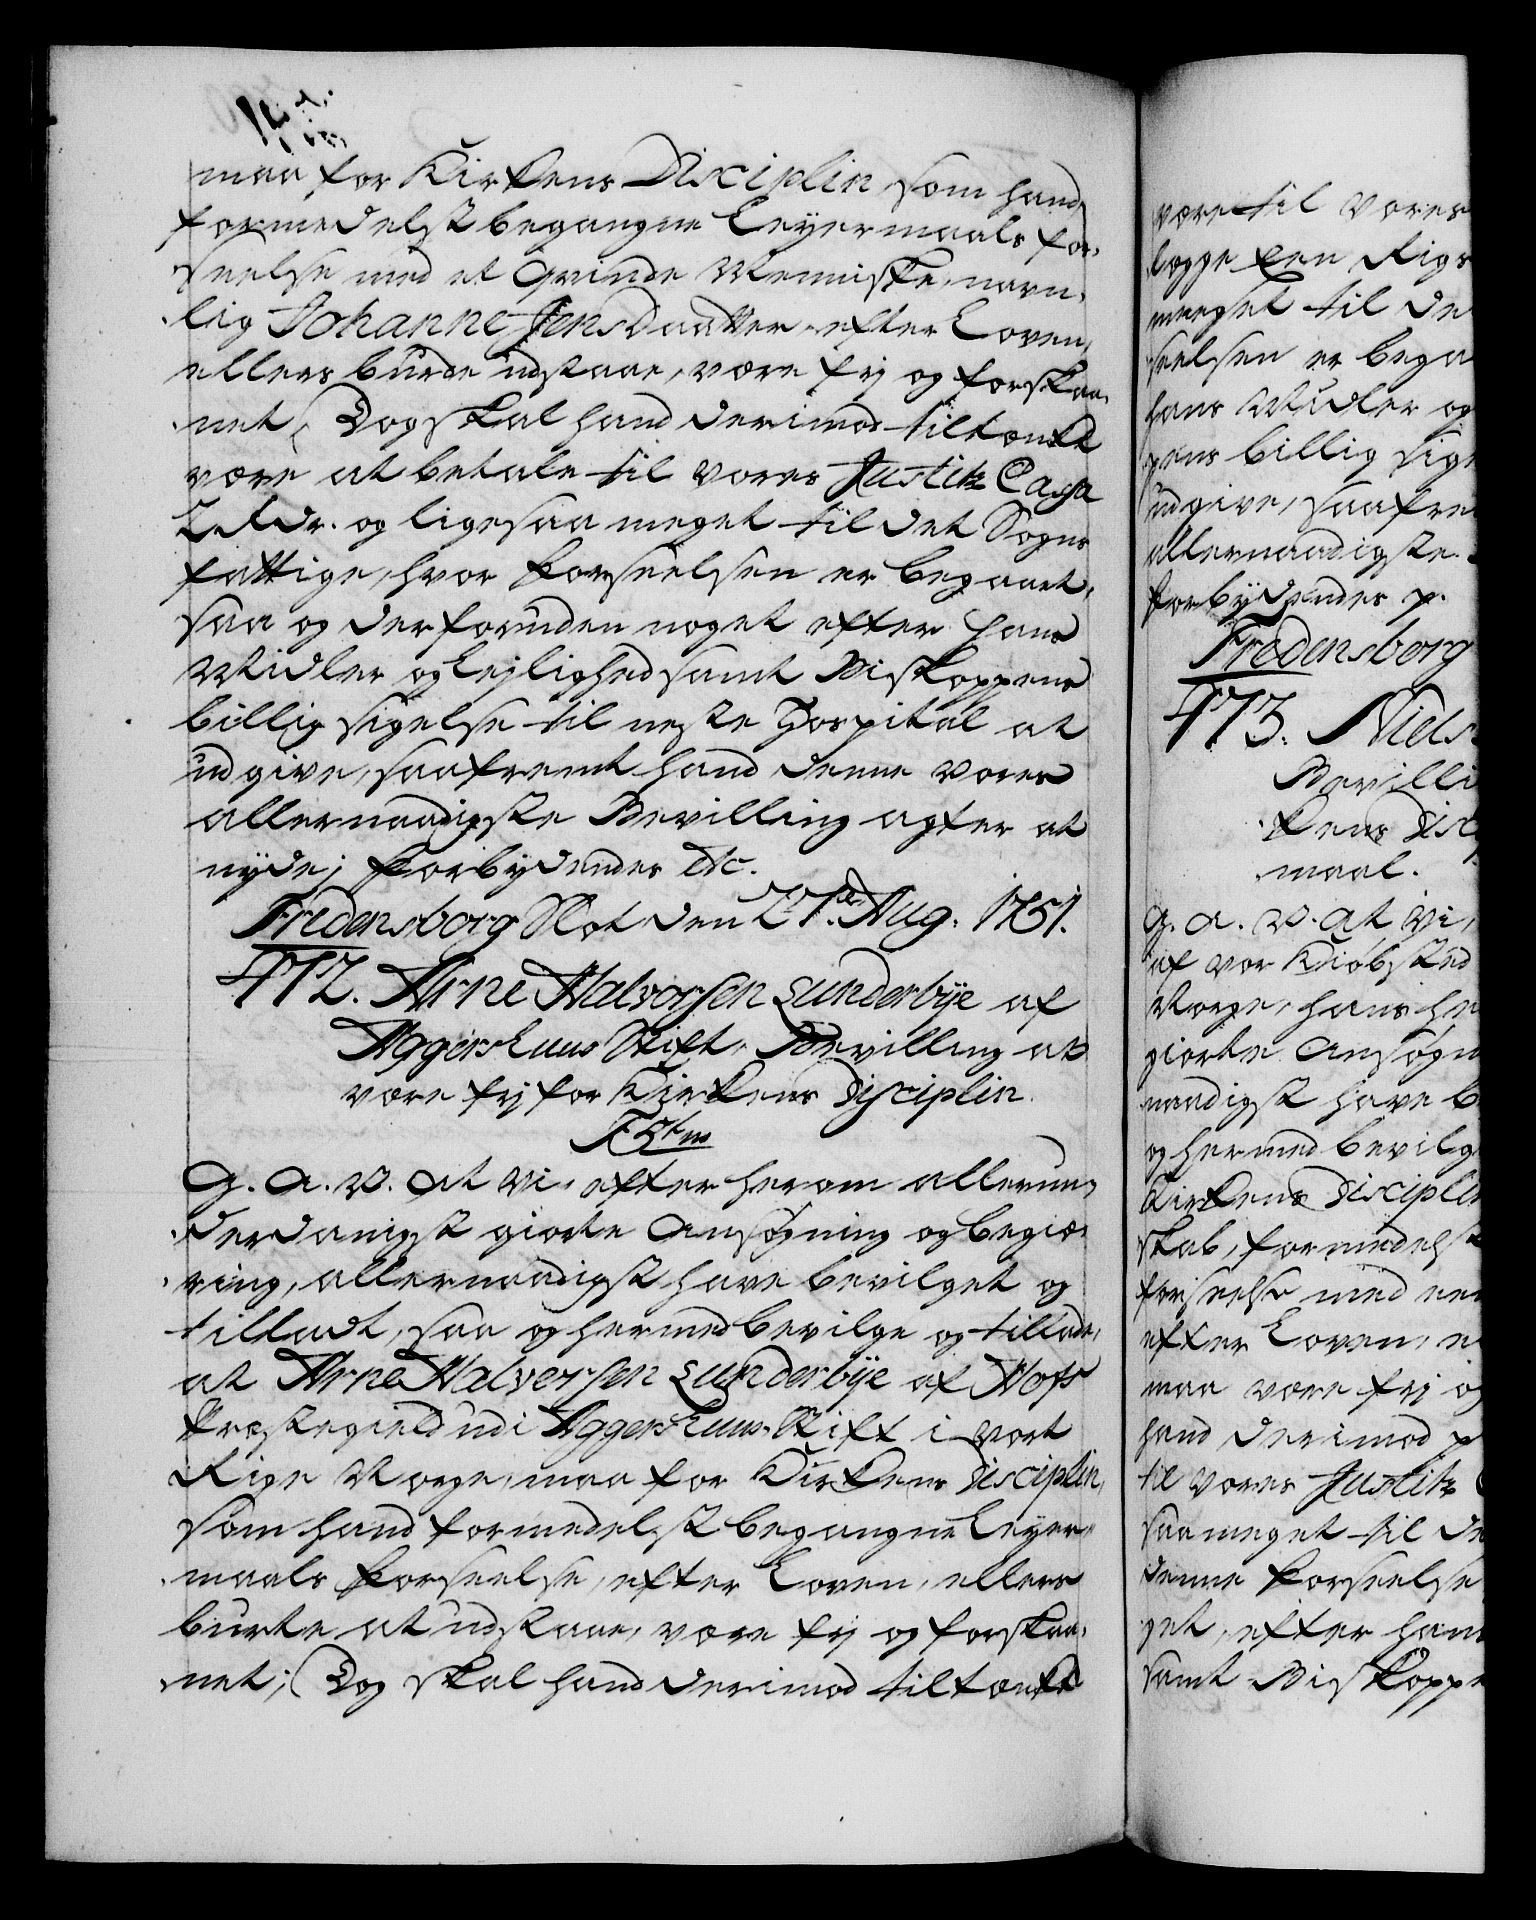 maa for Kirkens Disciplin, som hand
formedelst begangne Leyermaals for-
seelse med et Qvinde Menniske, navn-
lig Johanne Jensdaatter, efter Loven,
ellers burde udstaae, være frj og forskaa-
net, Dog skal hand derimod tiltænkt
være at betale til vores Justitz Cassa
2 Rdr. og ligesaa meget til det Sogns
fattige, hvor Forseelsen er begaaet,
saa og derforuden noget efter hans
Midler og Lejlighed samt Biskoppens
billig sigelse til neste Hospital at
udgive, saafremt hand denne vores
allernaadigste Bevilling agter at
nyde; Forbydendes etc.
Fredensborg Slot den 27de Aug. 1751.
472. Arne Halvorsen Lunderbÿe af
Aggershuus Stift, Bevilling at
være frj for Kirkens Disciplin.
F 5tus
G. A. V. At Vi, efter herom allerun-
derdanigst giorte Ansøgning og begiæ-
ring, allernaadigst have bevilget og
tilladt, saa og hermed bevilge og tillade,
at Arne Halvorsen Lunderbÿe af Hofs
Præstegield udi Aggershuus Stift i vort
Rige Norge, maa for Kirkens Disciplin,
som hand formedelst begangne Leyer-
maals Forseelse, efter Loven, ellers
burte at udstaae, være frj og forskaa-
net; Dog skal hand derimod tiltænkt
være til vores
ligge
meget til de
seelsen er bega
hans Midler og
pens billig sige
udgive, saafre
allernaadigste
forbydendes p.
Fredensborg
473. Niels
Bevilli
kens Disc
maal.
G. A. V. At Vi,
af vor Kiøbsted
Norge, hans he
giorte Ansøgn
naadigst have b
og hermed bevilg
Kirkens Disciplin
skab, formedelst
forseelse med en
efter Loven, e
maa være frj og
hand derimod p
til vores Justitz C
saa meget til de
denne Forseelse
get, efter hans
samt Biskoppe